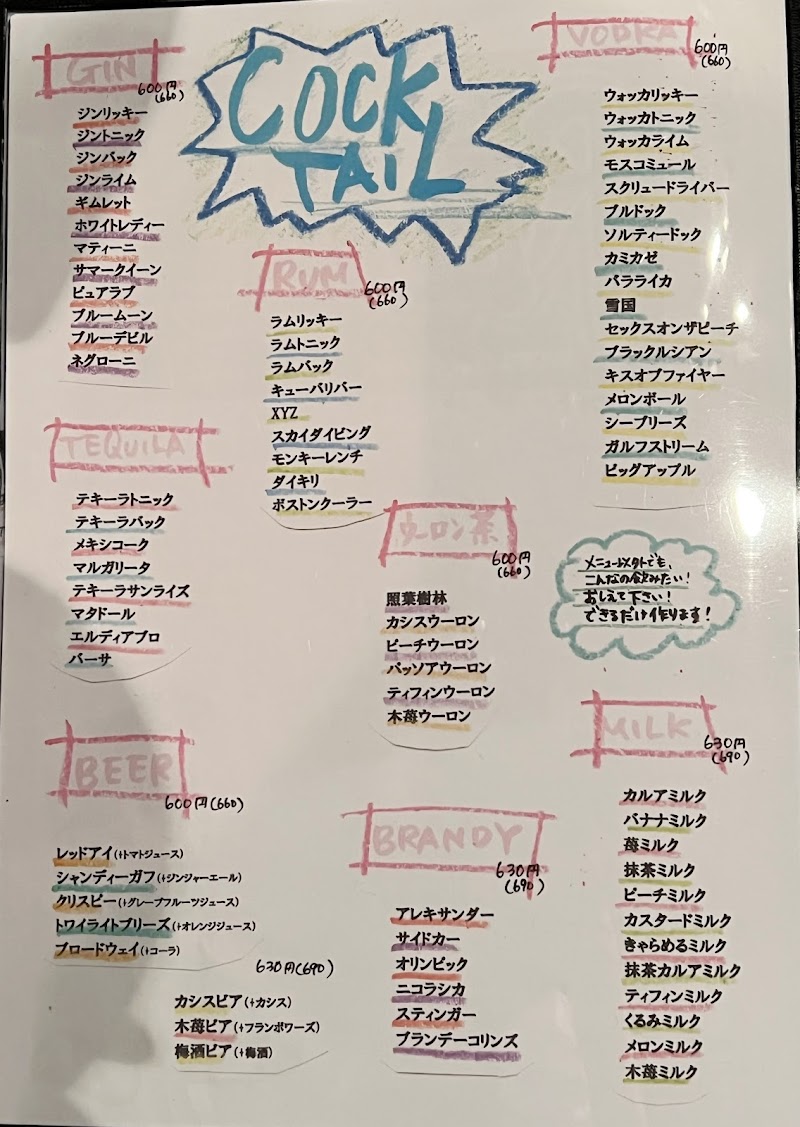 COCK
TAIL
GIN
600円
(660)
ジンリッキー
ジントニック
ジンバック
ジンライム
ギムレット
ホワイトレディー
マティーニ
サマークイーン
ピュアラブ
ブルームーン
ブルーデビル
ネグローニ
TEQUILA
テキーラトニック
テキーラバック
メキシコーク
マルガリータ
テキーラサンライズ
マタドール
エルディアブロ
バーサ
BEER
600円(660)
レッドアイ(+トマトジュース)
シャンディーガフ(+ジンジャーエール)
クリスピー(+グレープフルーツジュース)
トワイライトブリーズ(+オレンジジュース)
ブロードウェイ(+コーラ)
630円(690)
カシスビア(+カシス)
木苺ビア(+フランボワーズ)
梅酒ビア(+梅酒)
RUM
600円
(660)
ラムリッキー
ラムトニック
ラムバック
キューバリバー
XYZ
スカイダイビング
モンキーレンチ
ダイキリ
ボストンクーラー
ウーロン茶
600円
(660)
照葉樹林
カシスウーロン
ピーチウーロン
パッソアウーロン
ティフィンウーロン
木苺ウーロン
BRANDY
630円
(690)
アレキサンダー
サイドカー
オリンピック
ニコラシカ
スティンガー
ブランデーコリンズ
VODKA
600円
(660)
ウォッカリッキー
ウォッカトニック
ウォッカライム
モスコミュール
スクリュードライバー
ブルドック
ソルティードック
カミカゼ
バラライカ
雪国
セックスオンザピーチ
ブラックルシアン
キスオブファイヤー
メロンボール
シーブリーズ
ガルフストリーム
ビッグアップル
メニュー以外でも、
こんなの飲みたい!
おしえて下さい!
できるだけ作ります!
MILK
630円
(690)
カルアミルク
バナナミルク
苺ミルク
抹茶ミルク
ピーチミルク
カスタードミルク
きゃらめるミルク
抹茶カルアミルク
ティフィンミルク
くるみミルク
メロンミルク
木苺ミルク